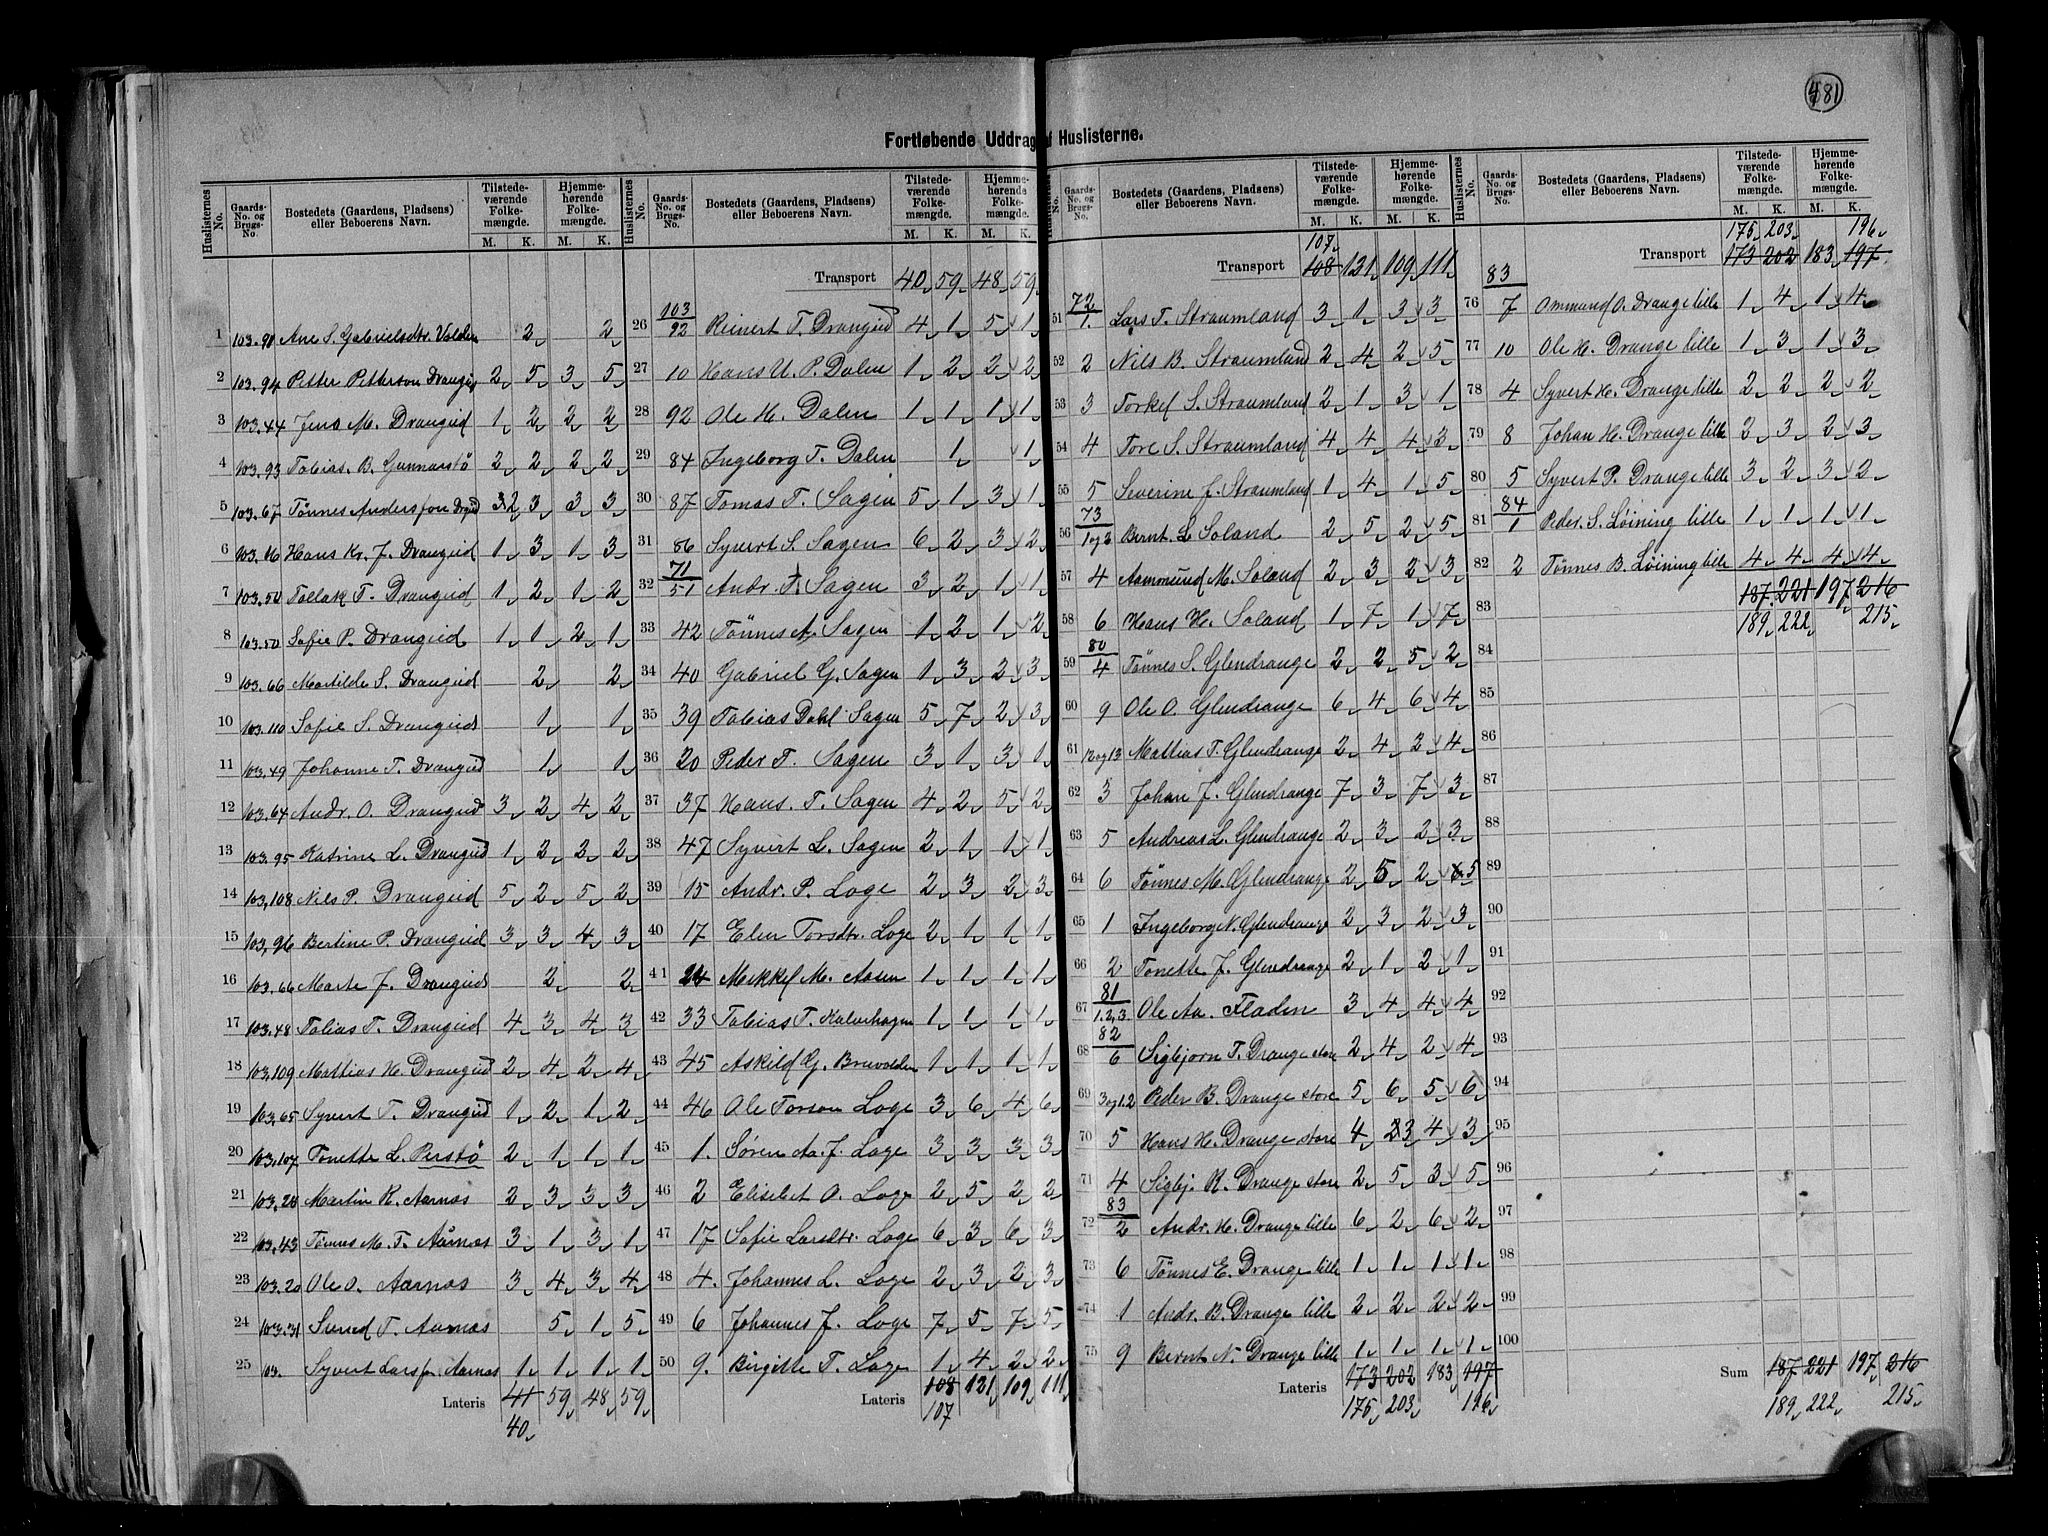 481
Fortløbende Uddrag af Huslisterne.
Huslisternes No. Gaards-No. og Brugs-No. Bostedets (Gaardens, Pladsens) eller Beboerens Navn. Tilstedeværende Folkemængde. M. K. Hjemmehørende Folkemængde. M. K.
1 103.91 Ane S. Gabrielsdtr. Valden 2 2
2 103.94 Petter Petterson Drangeid 2 5 3 5
3 103.44 Jens M. Drangeid 1 2 2 2
4 103.93 Tobias B. Gunnarstø 2 2 2 2
5 103.67 Tønnes Andersson Drgeid 3 2 3 3 3
6 103.16 Hans Kr. J. Drangeid 1 3 1 3
7 103.50 Tollak T. Drangeid 1 2 1 2
8 103.50 Sofie P. Drangeid 1 1 2 1
9 103.66 Martilde S. Drangeid 2 2
10 103.110 Sofie S. Drangeid 1 1
11 103.49 Johanne T. Drangeid 1 1
12 103.64 Andr. O. Drangeid 3 2 4 2
13 103.95 Katrine L. Drangeid 1 2 2 2
14 103.108 Nils P. Drangeid 5 2 5 2
15 103.96 Bertine P. Drangeid 3 3 4 3
16 103.66 Marte J. Drangeid 2 2
17 103.48 Tobias T. Drangeid 4 3 4 3
18 103.109 Mattias H. Drangeid 2 4 2 4
19 103.65 Syvert T. Drangeid 1 2 1 2
20 103.107 Tonette L. Perstø 2 1 1 1
21 103.20 Martin K. Aarnæs 2 3 3 3
22 103.43 Tønnes M. T. Aarnæs 3 1 3 1
23 103.20 Ole O. Aarnæs 3 4 3 4
24 103.31 Svend T. Aarnæs 5 1 5
25 103. Syvert Larsson Aarnæs 1 1 1 1
Lateris 41 59 48 59
40
Huslisternes No. Gaards-No. og Brugs-No. Bostedets (Gaardens, Pladsens) eller Beboerens Navn. Tilstedeværende Folkemængde. M. K. Hjemmehørende Folkemængde. M. K.
Transport 40 59 48 59
26 103/92 Reinert T. Drangeid 4 1 5 1
27 10 Hans U. P. Dalen 1 2 2 2
28 92 Ole H. Dalen 1 1 1 1
29 84 Ingeborg T. Dalen 1 1
30 87 Tomas T. Sagen 5 1 3 1
31 86 Syvert S. Sagen 6 2 3 2
32 71/51 Andr. T. Sagen 3 2 1 1
33 42 Tønnes A. Sagen 1 2 1 2
34 40 Gabriel G. Sagen 1 3 2 3
35 39 Tobias Dahl Sagen 5 7 2 3
36 20 Peder T. Sagen 3 1 3 1
37 37 Hans T. Sagen 4 2 5 2
38 47 Syvert L. Sagen 2 1 1 1
39 15 Andr. P. Loge 2 3 2 3
40 17 Elen Torsdtr. Loge 2 1 1 1
41 24 Mekkel M. Aasen 1 1 1 1
42 33 Tobias T. Kalvehagen 1 1 1 1
43 45 Askild G. Bruvolden 1 1 1 1
44 46 Ole Torson Loge 3 6 4 6
45 1. Søren Aa. J. Loge 3 3 3 3
46 2 Elisebet O. Loge 2 5 2 2
47 17 Sofie Larsdtr. Loge 6 3 6 3
48 4. Johannes L. Loge 2 3 2 3
49 6 Johannes J. Loge 7 5 7 5
50 9. Birgitte T. Loge 1 4 2 2
Lateris 108 121 109 111
107
No. Gaards-No. og Brugs-No. Bostedets (Gaardens, Pladsens) eller Beboerens Navn. Tilstedeværende Folkemængde. M. K. Hjemmehørende Folkemængde. M. K.
107
Transport 108 121 109 111
51 72/1. Lars T. Straumland 3 1 3 3
52 2 Nils B. Straumland 2 4 2 5
53 3 Torkel S. Straumland 2 1 3 1
54 4 Tore S. Straumland 4 4 4 3
55 5 Severine J. Straumland 1 4 1 5
56 73/1 og 3 Bernt L Soland 2 5 2 5
57 4 Aammund M. Soland 2 3 2 3
58 6 Hans H. Soland 1 7 1 7
59 80/4 Tønnes S. Glendrange 2 2 5 2
60 9 Ole O. Glendrange 6 4 6 4
61 12 og 13 Mattias T. Glendrange 2 4 2 4
62 3 Johan J. Glendrange 7 3 7 3
63 5 Andreas L. Glendrange 2 3 2 3
64 6 Tønnes M. Glendrange 2 5 2 6 5
65 1 Ingeborg N. Glendrange 2 3 2 3
66 2 Tonette J. Glendrange 2 1 2 1
67 81/1.2.3 Ole Aa. Fladen 3 4 4 4
68 82/6 Sigbjørn T. Drange store 2 4 2 4
69 3 og 1.2 Peder B. Drange store 5 6 5 6
70 5 Hans H. Drange store 4 2 3 4 3
71 4 Sigbj. R. Drange store 2 5 3 5
72 83/2 Andr. H. Drange lille 6 2 6 2
73 6 Tønnes E. Drange lille 1 1 1 1
74 1 Andr. B. Drange lille 2 2 2 2
75 9 Bernt N. Drange lille 1 1 1 1
Lateris 173 202 183 197
175 203 196
Huslisternes No. Gaards-No. og Brugs-No. Bostedets (Gaardens, Pladsens) eller Beboerens Navn. Tilstedeværende Folkemængde. M. K. Hjemmehørende Folkemængde. M. K.
175 203 196
Transport 173 202 183 197
76 83/7 Ommund O. Drange lille 1 4 1 4
77 10 Ole H. Drange lille 1 3 1 3
78 4 Syvert H. Drange lille 2 2 2 2
79 8 Johan H. Drange lille 2 3 2 3
80 5 Syvert P. Drange lille 3 2 3 2
81 84/1 Peder S. Løining lille 1 1 1 1
82 2 Tønnes B. Løining lille 4 4 4 4
83 187 221 197 216
189 222 215
84
85
86
87
88
89
90
91
92
93
94
95
96
97
98
99
100
Sum 187 221 197 216
189 222 215